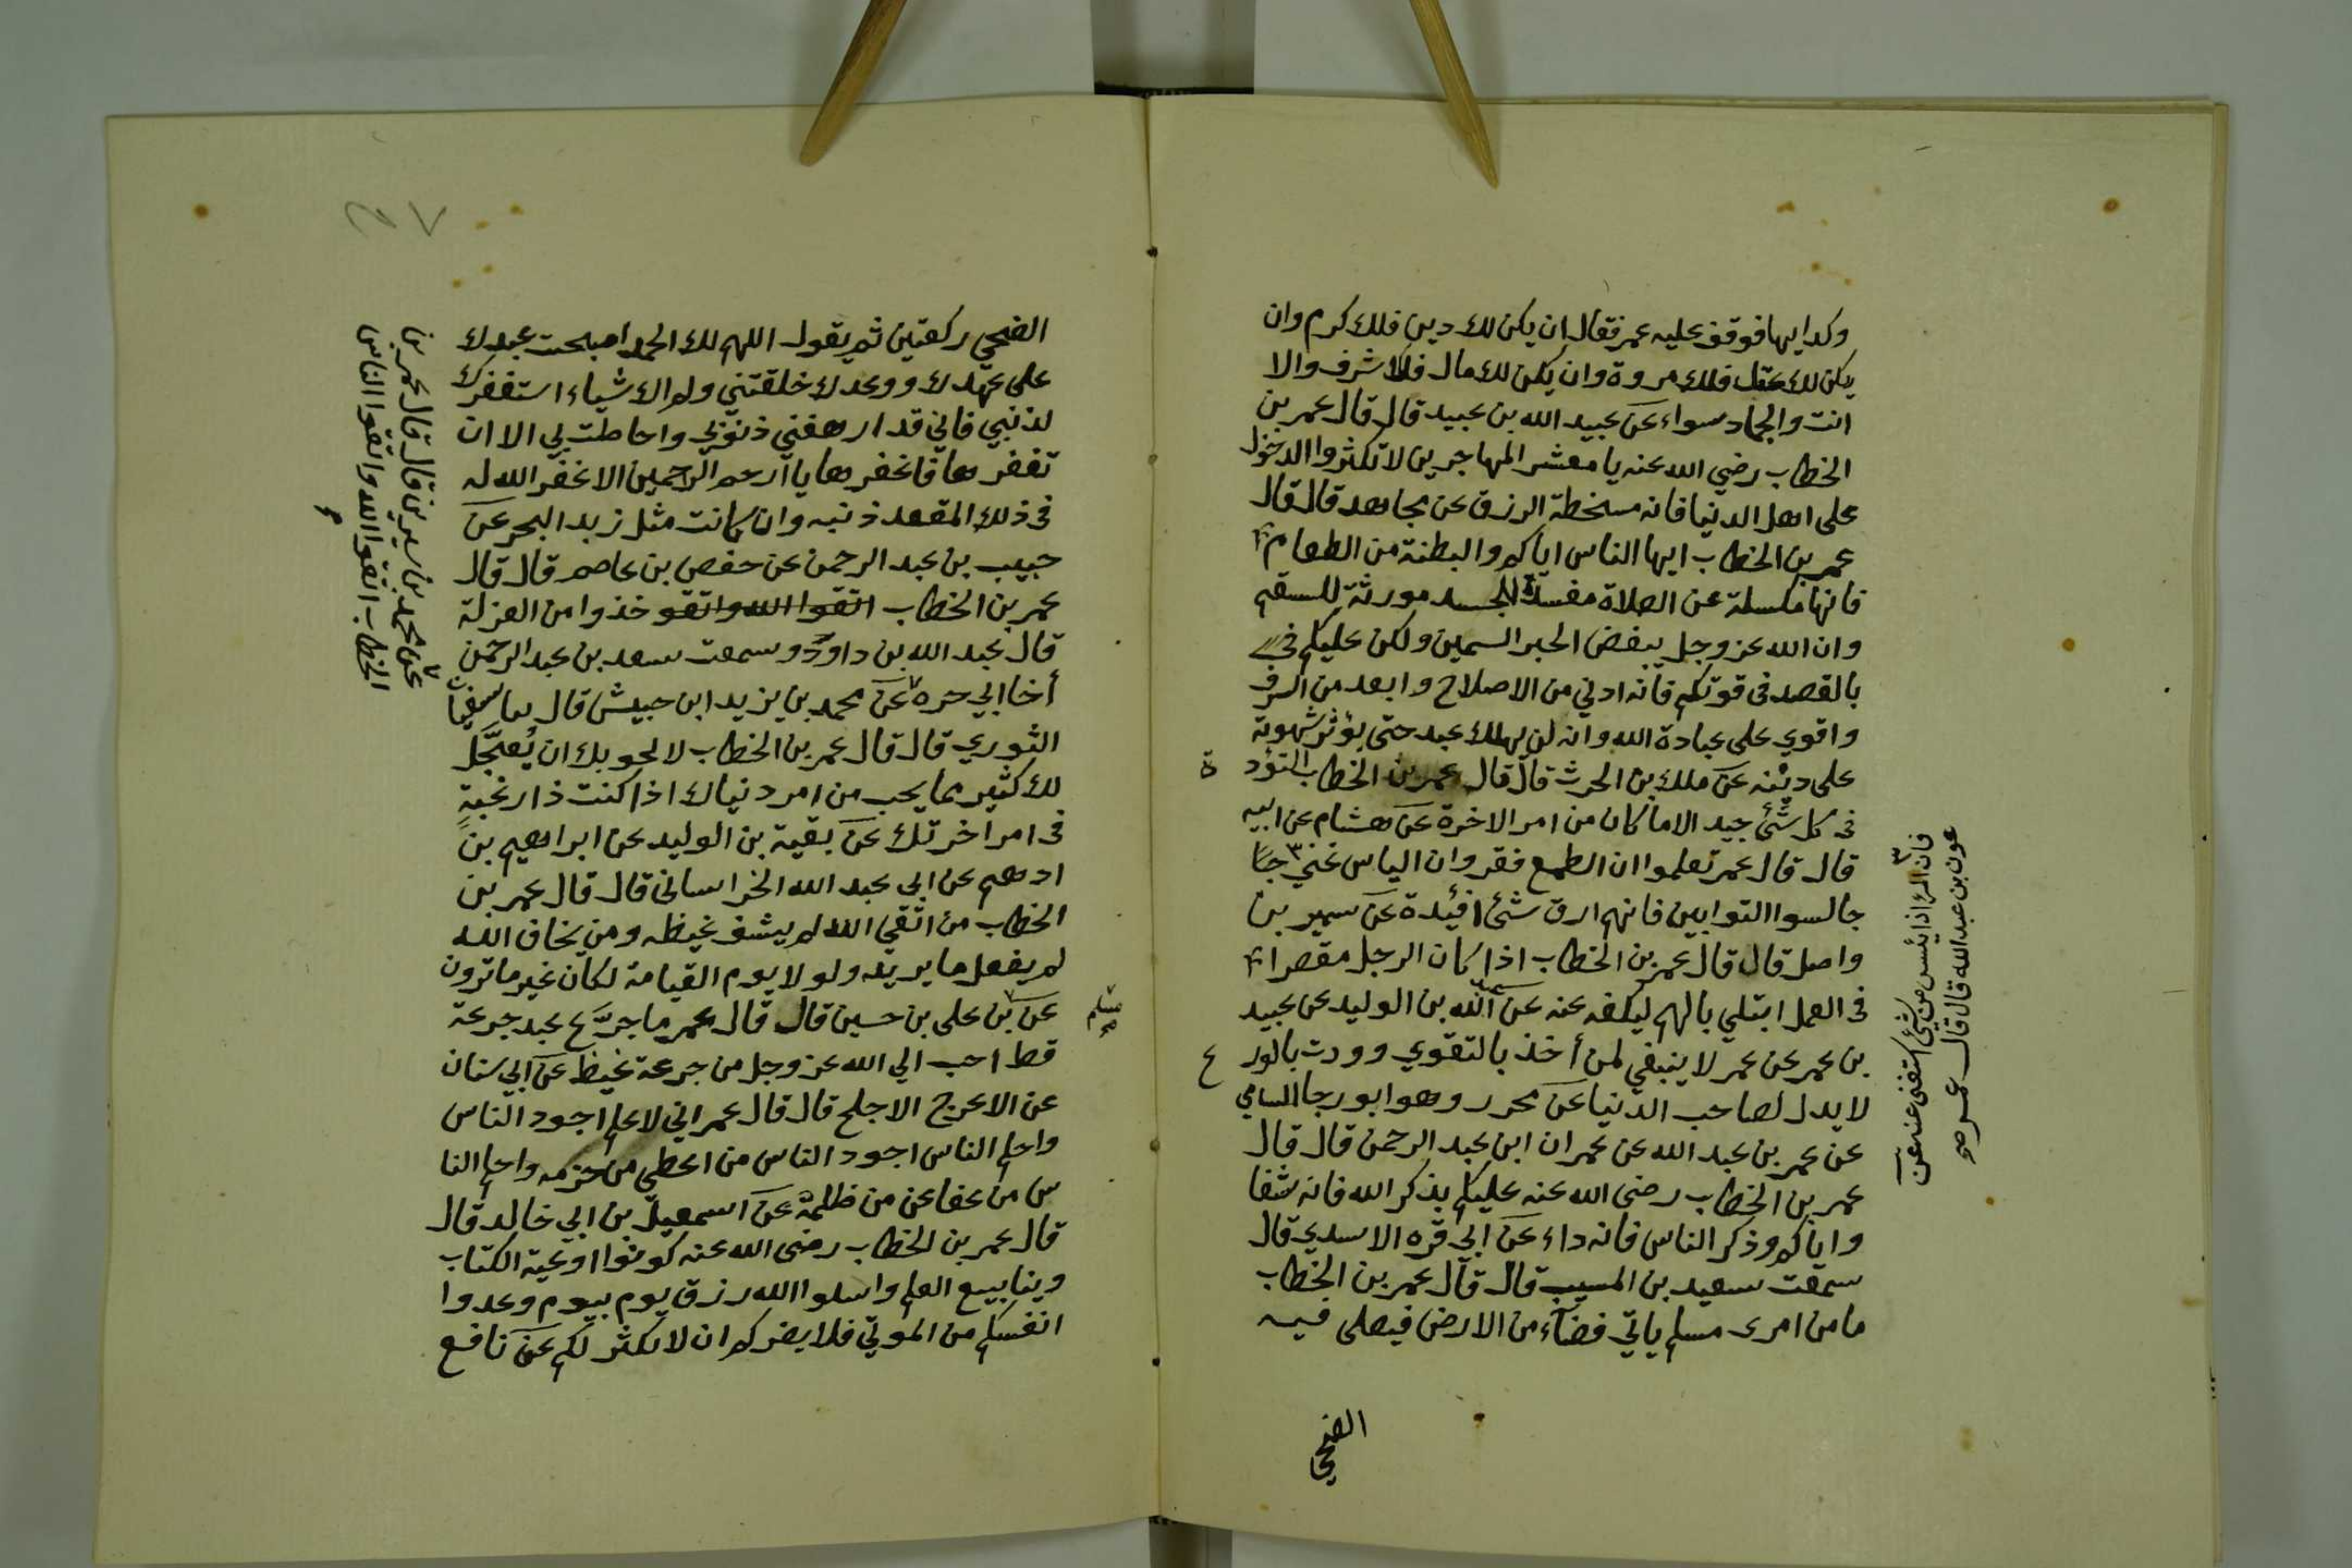 وكدا ايها فوقف عليه عمر فقال ان يكن لك دين فلك كرم وان
يكن لك عقل فلك مروة وان يكن لك مال فلك شرف والا
انت والحمار سواء عن عبيد الله بن عبيد قال قال عمر بن
الخطاب رضي الله عنه يا معشر المهاجرين لا تكثروا الدخول
على اهل الدنيا فانه مسخطة الرزق عن مجاهد قال قال
عمر بن الخطاب ايها الناس اياكم والبطنة من الطعام
فانها مكسلة عن الصلاة مفسدة للجسد مورثة للسقم
وان الله عز وجل يبغض الحبر السمين ولكن عليكم
بالقصد فى قوتكم فانه ادني من الاصلاح وابعد من السرف
واقوي على عبادة الله وانه لن يهلك عبد حتى يؤثر شهوته
على دينه عن ملك بن الحرث قال قال عمر بن الخطاب التؤد
ة
فى كل شئ جيد الا ما كان من امر الاخرة عن هشام عن ابيه
قال قال عمر تعلموا ان الطمع فقر وان الياس غني
جالسوا التوابين فانهم ارق شئ افئدة عن سمير بن
واصل قال قال عمر بن الخطاب اذا كان الرجل مقصرا
فى العمل ابتلي بالهم ليكفه عنه عن الله بن الوليد عن عبيد
بن عمر عن عمر لا ينبغي لمن أخذ بالتقوي وودت بالور
ع
لا يدل لصاحب الدنيا عن محرر وهو ابو رجا السامي
عن عمر بن عبد الله عن عمران ابن عبد الرحمن قال قال
عمر بن الخطاب رضى الله عنه عليكم بذكر الله فانه شفا
واياكم وذكر الناس فانه داء عن ابي قره الاسدي قال
سمعت سعيد بن المسيب قال قال عمر بن الخطاب
ما من امرى مسلم ياتي فضآء من الارض فيصلى فيه
الضحي
فان المرء اذا يئس من شئ استغنى عنه عن
عون بن عبد الله قال قال عمر
الضحي ركعتين ثم يقول اللهم لك الحمد اصبحت عبدك
على عهدك ووعدك خلقتني ولم اك شياء استغفرك
لذنبي فاني قد ارهقني ذنوبي واحاطت بي الا ان
تغفرها فاغفرها يا ارحم الرحمين الا غفر الله له
فى ذلك المقعد ذنبه وان كانت مثل زبد البحر عن
حبيب بن عبد الرحمن عن حفص بن عاصم قال قال
عمر بن الخطاب اتقوا الله واتقو خذوا من العزلة
قال عبد الله بن داود وسمعت سعد بن عبد الرحمن
أخا ابي حره عن محمد بن يزيد ابن حبيش قال سفيان
الثوري قال قال عمر بن الخطاب ان يُعجَّل
لك كثير مما يحب من امر دنياك اذا كنت ذا رغبةٍ
فى امر اخرتك عن بقية بن الوليد عن ابراهيم بن
ادهم عن ابي عبد الله الخراسانى قال قال عمر بن
الخطاب من اتقي الله لم يشف غيظه ومن يخاف الله
لم يفعل ما يريد ولو لا يوم القيامة لكان غير ما ترون
عن بن على بن حسين قال قال عمر ما جرَّع عبد جرعة
قط احب الي الله عز وجل من جرعة غيظ عن ابي سنان
عن الاعرج الاجلح قال قال عمر اني لاعلم اجود الناس
واحلم الناس اجود الناس من اعطي من حزمه واحلم النا
س من عفا عن من ظلمه عن اسمعيل بن ابي خالد قال
قال عمر بن الخطاب رضى الله عنه كونوا اوعية الكتاب
وينابيع العلم واسلوا الله رزق يوم بيوم وعدوا
انفسكم من الموتي فلا يضركم ان لا يكثر لكم عن نافع
عن محمد بن سيرين قال قال عمر بن
الخطاب اتقوا الله واتقوا الناس